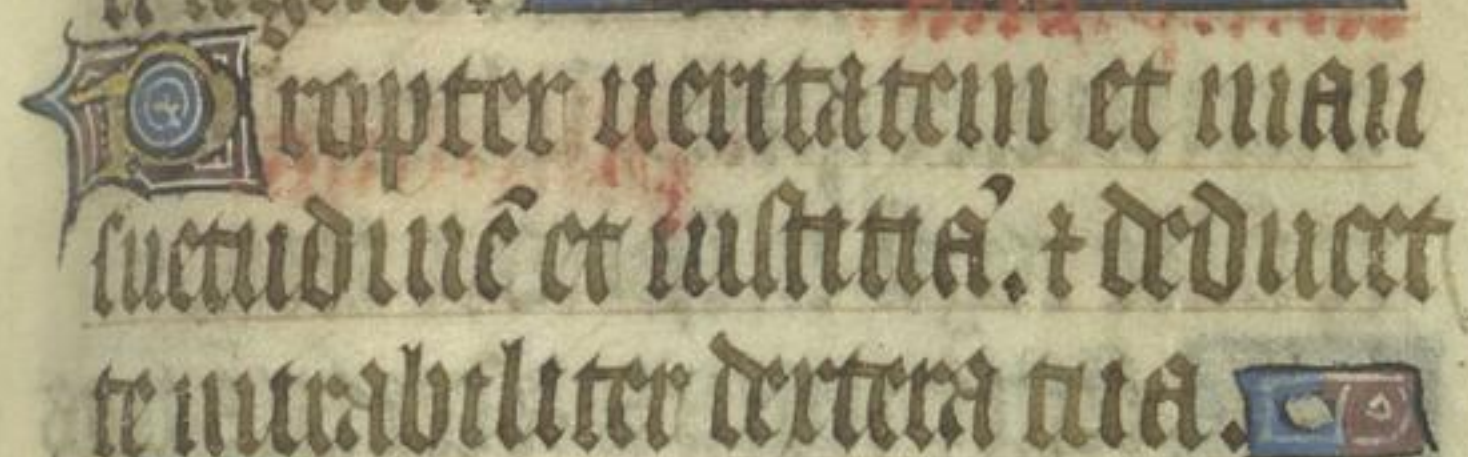 Propter ueritatem et man
suetudinẽ et iustitiã. ⁊ deducet
te mirabiliter dextera tua.